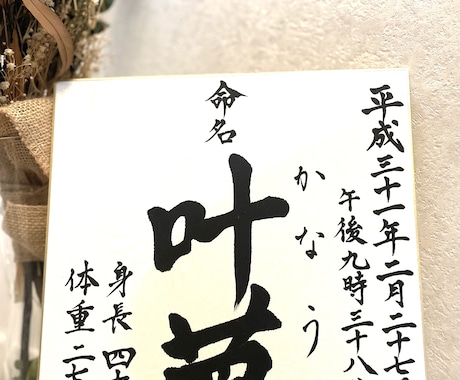 平成三十一年二月二十七
午後九時三十八
かなう
命名
叶
身長 四
体重 二七